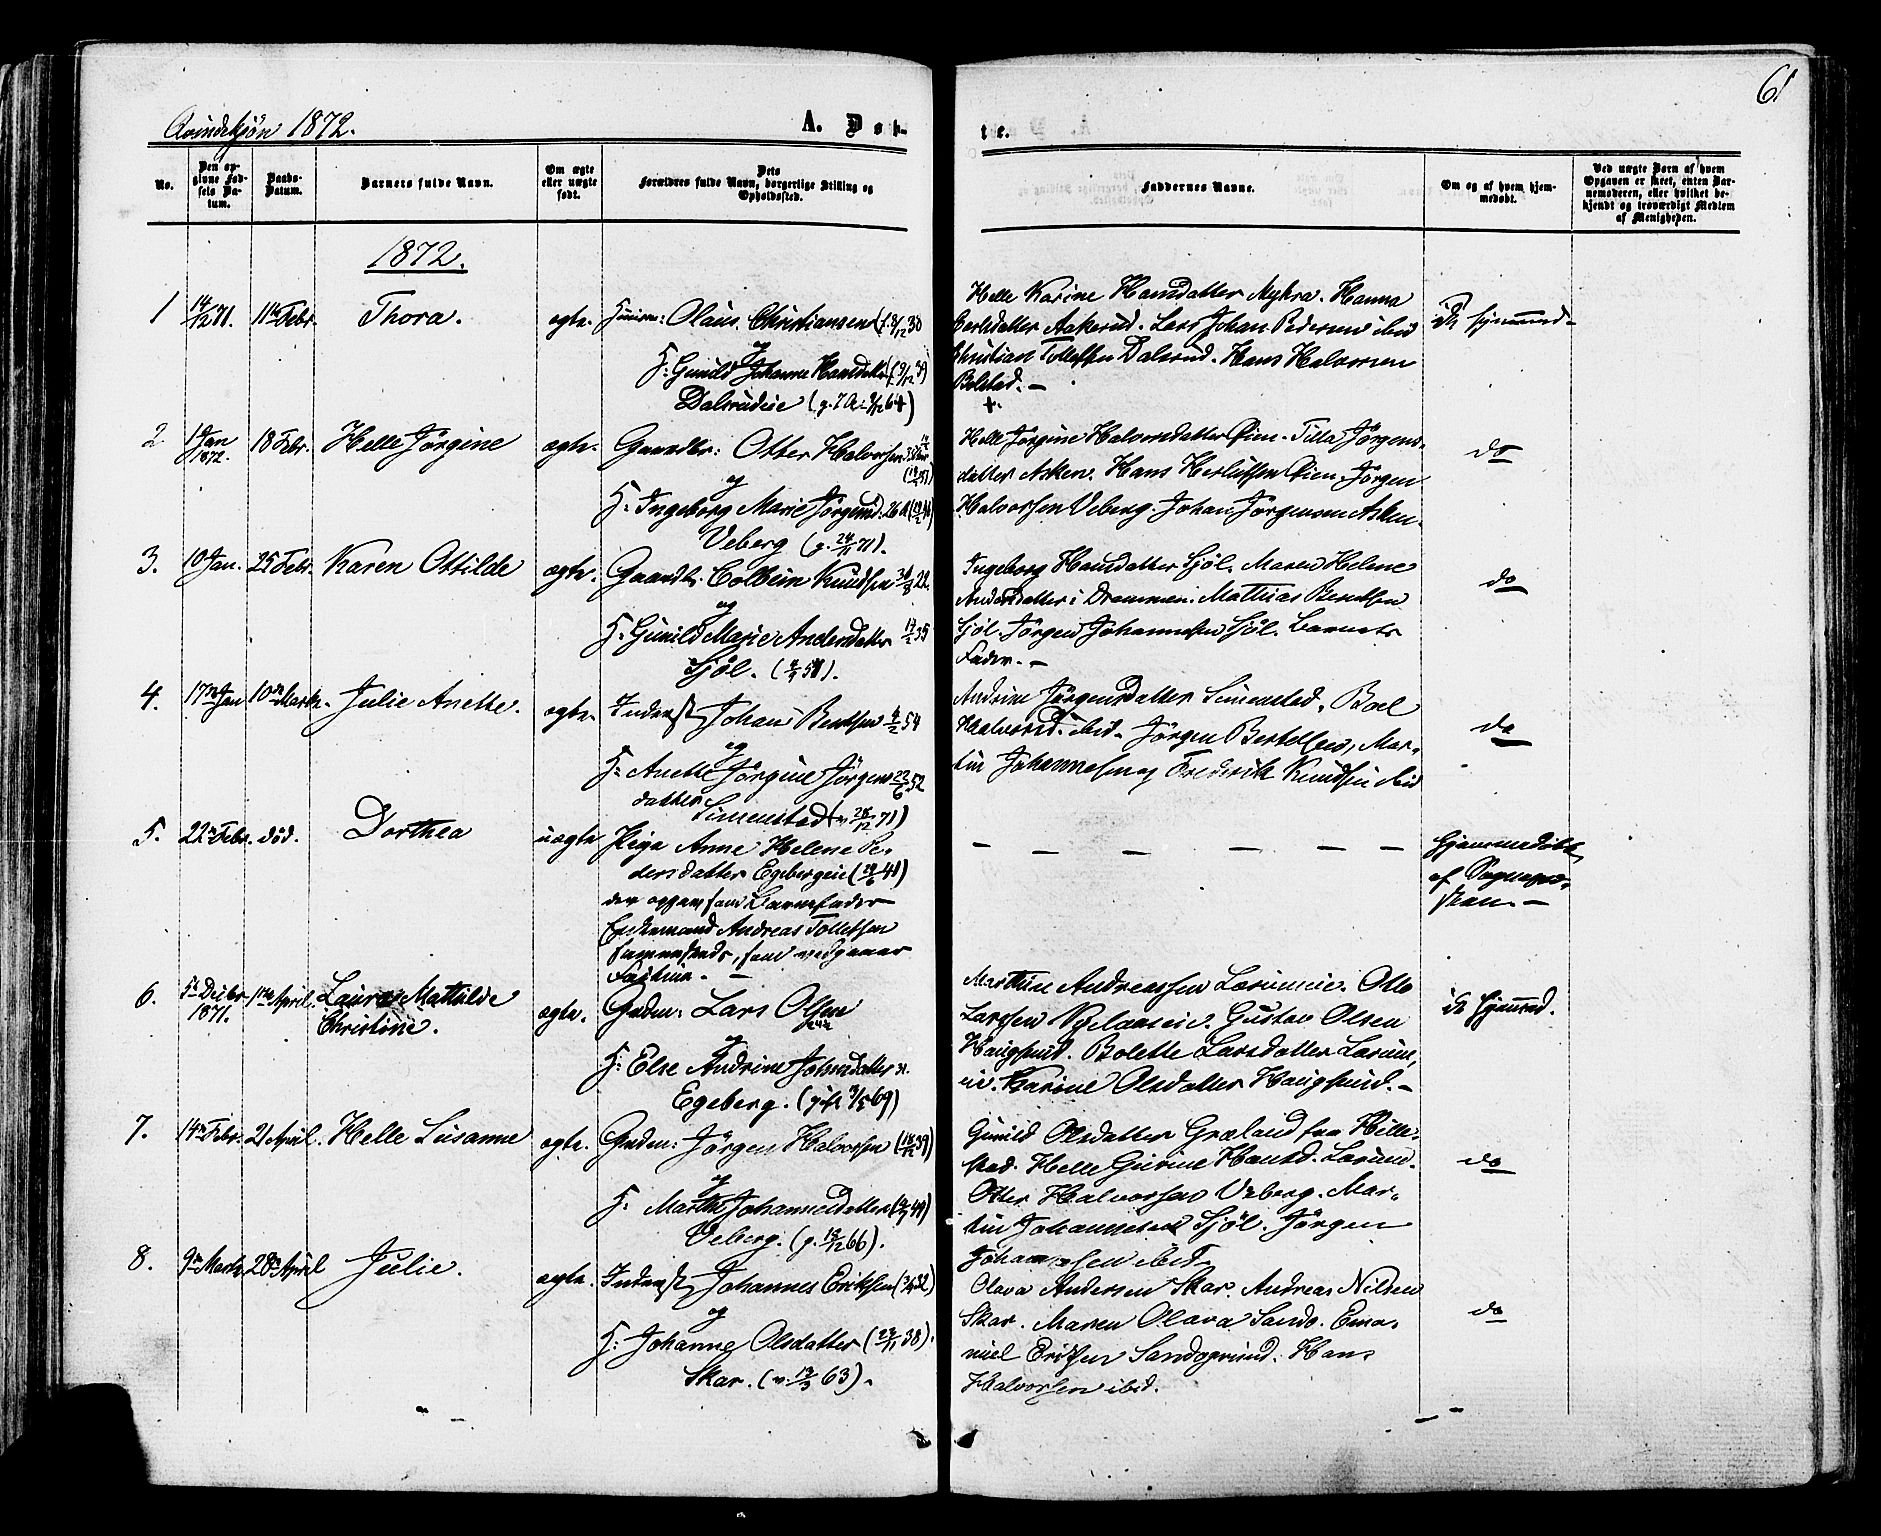 61
Qvindekjøn 1872.
A. Døb-
te.
No.
Den op-
givne Fød-
sels Da-
tum.
Daabs-
Datum.
Barnets fulde Navn.
Om ægte
eller uægte
født.
Dets
Forældres fulde Navn, borgerlige Stilling og
Opholdssted.
Faddernes Navne.
Om og af hvem hjem-
medøbt.
Ved uægte Børn af hvem
Opgaven er skeet, enten Bar-
nemoderen, eller hvilket be-
kjendt og troværdigt Medlem
af Menigheden.
1872.
1
14/12 71.
11te Febr.
Thora.
ægte.
Olaus Christiansen
og
H: Gunild Johanne Hansdatter
Dalsrudeie
Helle Karine Hansdatter Myhra. Hanna
Carlsdatter Aakerud. Lars Johan Pedersen ibid
Christian Tollefsen Dalsrud. Hans Halvorsen
Bolstad. —
ik hjemmed-
2
1 Jan
1872.
18 Febr.
Helle Jørgine
ægte.
Gaardbr: Otter Halvorsen
og
H: Ingeborg Marie Jørgensd. 26 A
Veberg (g. 24/11 71).
Helle Jørgine Halvorsdatter Øien. Tilla Jørgens-
datter Asken. Hans Herlufsen Øien. Jørgen
Halvorsen Veberg. Johan Jørgensen Asken.
do
3.
10 Jan.
25 Febr.
Karen Ottilde
ægte.
Gaardb. Colbein Knudsen
og
H: Gunild Marie Andersdatter
Sjøl.
Ingeborg Hansdatter Sjöl. Maren Helene
Andersdatter i Drammen. Mathias Berntsen
Sjöl. Jørgen Johannesen Sjöl. Barnets
Fader. —
do
4.
17de Jan
10de Marts.
Julie Anette.
ægte.
Inderst Johan Berntsen
og
H: Anette Jørgine Jørgens
datter
Simenstad
Andrine Jørgensdatter Simenstad, Boel
Halvorsd. ibid. Jørgen Bertelsen, Mar-
tin Johannesen og Frederik Knudsen ibid
do
5.
22de Febr.
død.
Dorthea
uægte
Pige Anne Helene Pe-
dersdatter Egebergeie
der opgav som Barnefader
Enkemand Andreas Tollefsen
som vedgaaer
— — — — — —
Hjemmedøbt
af Sognepræ-
sten. —
6.
5te Decbr
1871.
1ste April.
Laura Mathilde
Christine.
ægte.
Gaardm: Lars Olsen
og
H: Else Andrine Johnsdatter
Egeberg. (gift 69)
Andreassen Otto
Larssen Gustav Olsen
Haugsrud. Bolette Larsdatter
eie. Karine Olsdatter Haugsrud. —
ik hjemmd.
7.
14de Febr.
21 April.
Helle Susanne
ægte.
Gaardm: Jørgen Halvorsen
og
H. Marthe Johannesdatter
Veberg. (g. 66).
Gunild Olsdatter Græland fra Hille-
stad. Helle Gurine Hansd.
Otter Halvorsen Veberg. Mar-
tin Johannesen Sjöl. Jørgen
Johannesen ibid.
do
8.
9de Marts.
28de April
Julie.
ægte.
Inderst Johannes Eriksen
og
H: Johanne Olsdatter
Skar. (v. 63).
Olava Andersen Skar. Andreas Nilsen
Skar. Maren Olava Sando. Ema-
nuel Eriksen Hans
Halvorsen ibid.
do